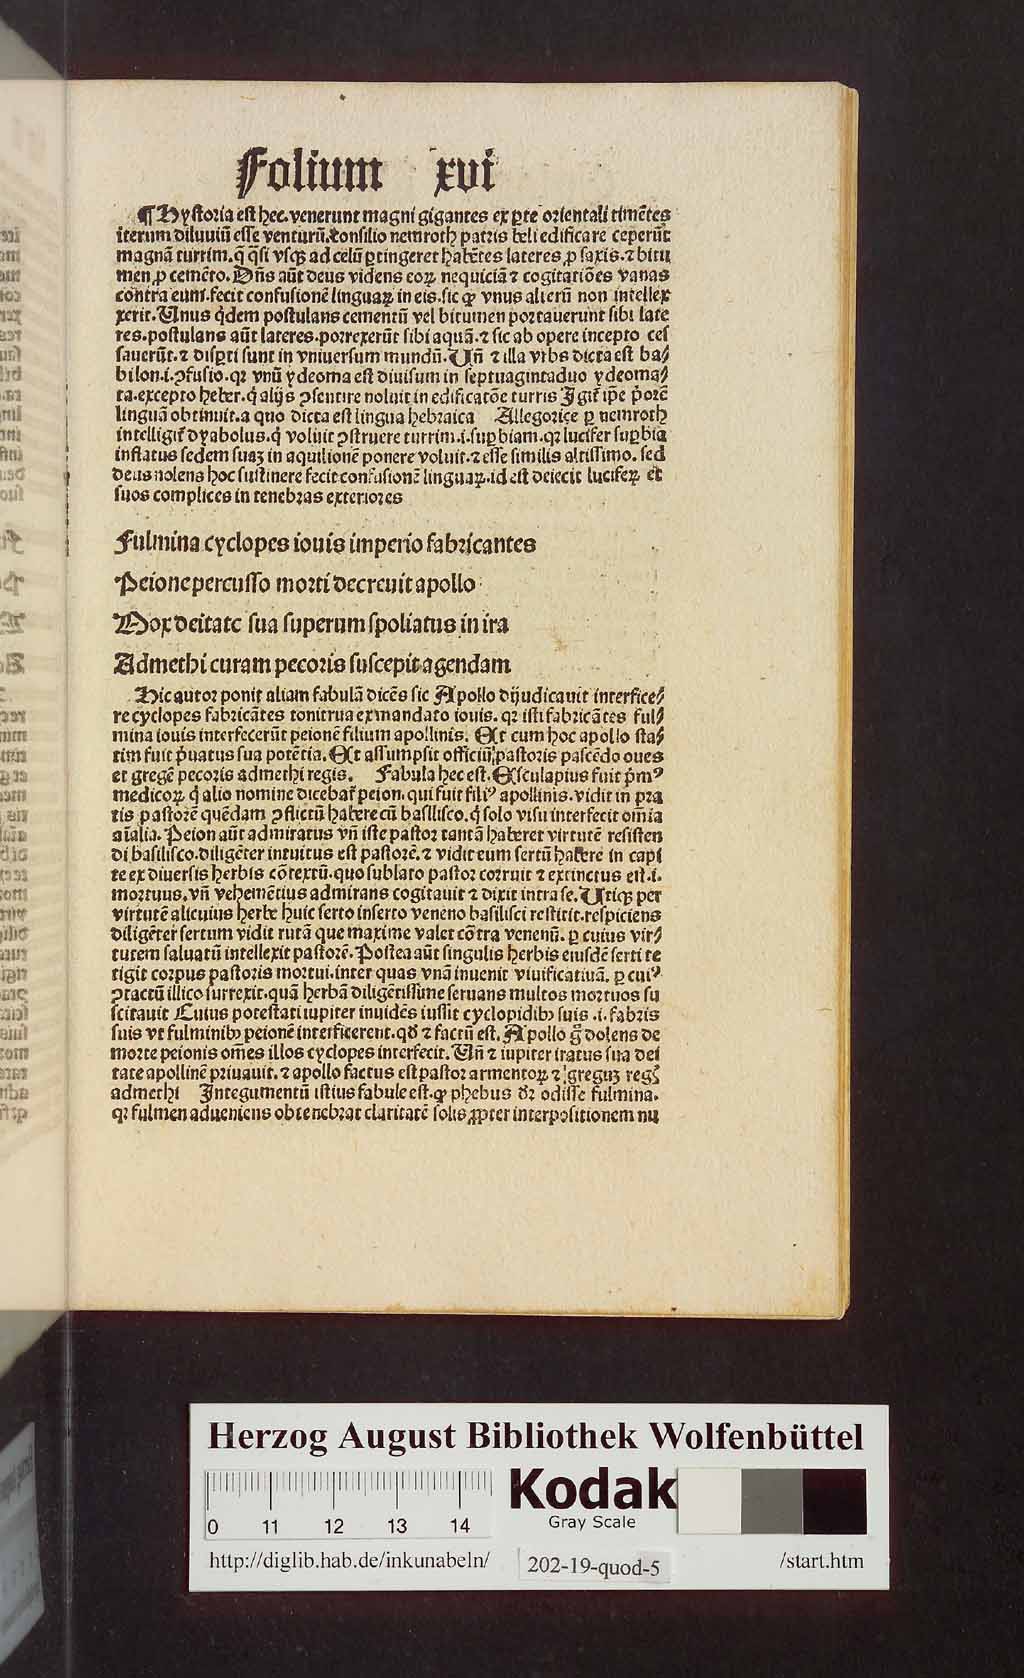 Folium xvi
¶ Hystoria est hec. venerunt magni gigantes ex ꝑte orientali timẽtes
iterum diluuiũ esse venturũ. Consilio nemroth patris beli edificare ceperũt
magnã turrim. q̃ q̃si vsqꝫ ad celũ ꝑtingeret habẽtes lateres ꝓ saxis. ⁊ bitu
men ꝓ cemẽto. Dñs aũt deus videns eoꝝ nequiciã ⁊ cogitatiões vanas
contra eum. fecit confusionẽ linguaꝝ in eis. sic ꝙ vnus alterũ non intellex
xerit. Unus q̇dem postulans cementũ vel bitumen portauerunt sibi late
res. postulans aũt lateres. porrexerũt sibi aquã. ⁊ sic ab opere incepto ces
sauerũt. ⁊ disꝑti sunt in vniuersum mundũ. Uñ ⁊ illa vrbs dicta est ba⸗
bilon .i. ꝯfusio. qꝛ vnũ ydeoma est diuisum in septuagintaduo ydeoma⸗
ta. excepto heber. q̇ alijs ꝯsentire noluit in edificatõe turris Igit̃ ip̃e p̃orẽ
linguã obtinuit. a quo dicta est lingua hebraica Allegorice ꝑ nemroth
intelligit̃ dyabolus. q̇ voluit ꝯstruere turrim .i. suꝑbiam. qꝛ lucifer suꝑbia
inflatus sedem suaꝫ in aquilionẽ ponere voluit. ⁊ esse similis altissimo. sed
deus nolens hoc sustinere fecit confusionẽ linguaꝝ. id est deiecit luciferꝝ et
suos complices in tenebras exteriores
Fulmina cyclopes iouis imperio fabricantes
Peione percusso morti decreuit apollo
Mox deitate sua superum spoliatus in ira
Admethi curam pecoris suscepit agendam
Hic autor ponit aliam fabulã dicẽs sic Apollo dijudicauit interfice⸗
re cyclopes fabricãtes tonitrua ex mandato iouis. qꝛ isti fabricãtes ful⸗
mina iouis interfecerũt peionẽ filium apollinis. Et cum hoc apollo sta⸗
tim fuit p̃uatus sua potẽtia. Et assumpsit officiũ pastoris pascẽdo oues
et gregẽ pecoris admethi regis. Fabula hec est. Esculapius fuit p̃mꝰ
medicoꝝ q̇ alio nomine dicebat̃ peion. qui fuit filiꝰ apollinis. vidit in pra
tis pastorẽ quẽdam ꝯflictũ habere cũ basilisco. q̇ solo visu interfecit om̃ia
aĩalia. Peion aũt admiratus vñ iste pastor tantã haberet virtutẽ resisten
di basilisco. diligẽter intuitus est pastorẽ. ⁊ vidit eum sertũ habere in capi
te ex diuersis herbis cõtextũ. quo sublato pastor corruit ⁊ extinctus est .i.
mortuus. vñ vehemẽtius admirans cogitauit ⁊ dixit intra se. Utiqꝫ per
virtutẽ alicuius herbe huic serto inserto veneno basilisci restitit. respiciens
diligẽter sertum vidit rutã que maxime valet cõtra venenũ. ꝑ cuius vir⸗
tutem saluatũ intellexit pastorẽ. Postea aũt singulis herbis eiusdẽ serti te
tigit corpus pastoris mortui. inter quas vnã inuenit viuificatiuã. ꝑ cuiꝰ
ꝯtactũ illico surrexit. quã herbã diligẽtissime seruans multos mortuos su
scitauit Cuius potestati iupiter inuidẽs iussit cyclopidibꝫ suis .i. fabris
suis vt fulminibꝫ peionẽ interficerent. qđ ⁊ factũ est. Apollo g̃ dolens de
morte peionis om̃es illos cyclopes interfecit. Uñ ⁊ iupiter iratus sua dei
tate apollinẽ priuauit. ⁊ apollo factus est pastor armentoꝝ ⁊ greguꝫ regꝭ
admethi Integumentũ istius fabule est. ꝙ phebus dr̃ odisse fulmina.
qꝛ fulmen adueniens obtenebrat claritatẽ solis ꝓpter interpositionem nu
Herzog August Bibliothek Wolfenbüttel
0 11 12 13 14
Kodak
Gray Scale
http://diglib.hab.de/inkunabeln/ 202-19-quod-5 /start.htm